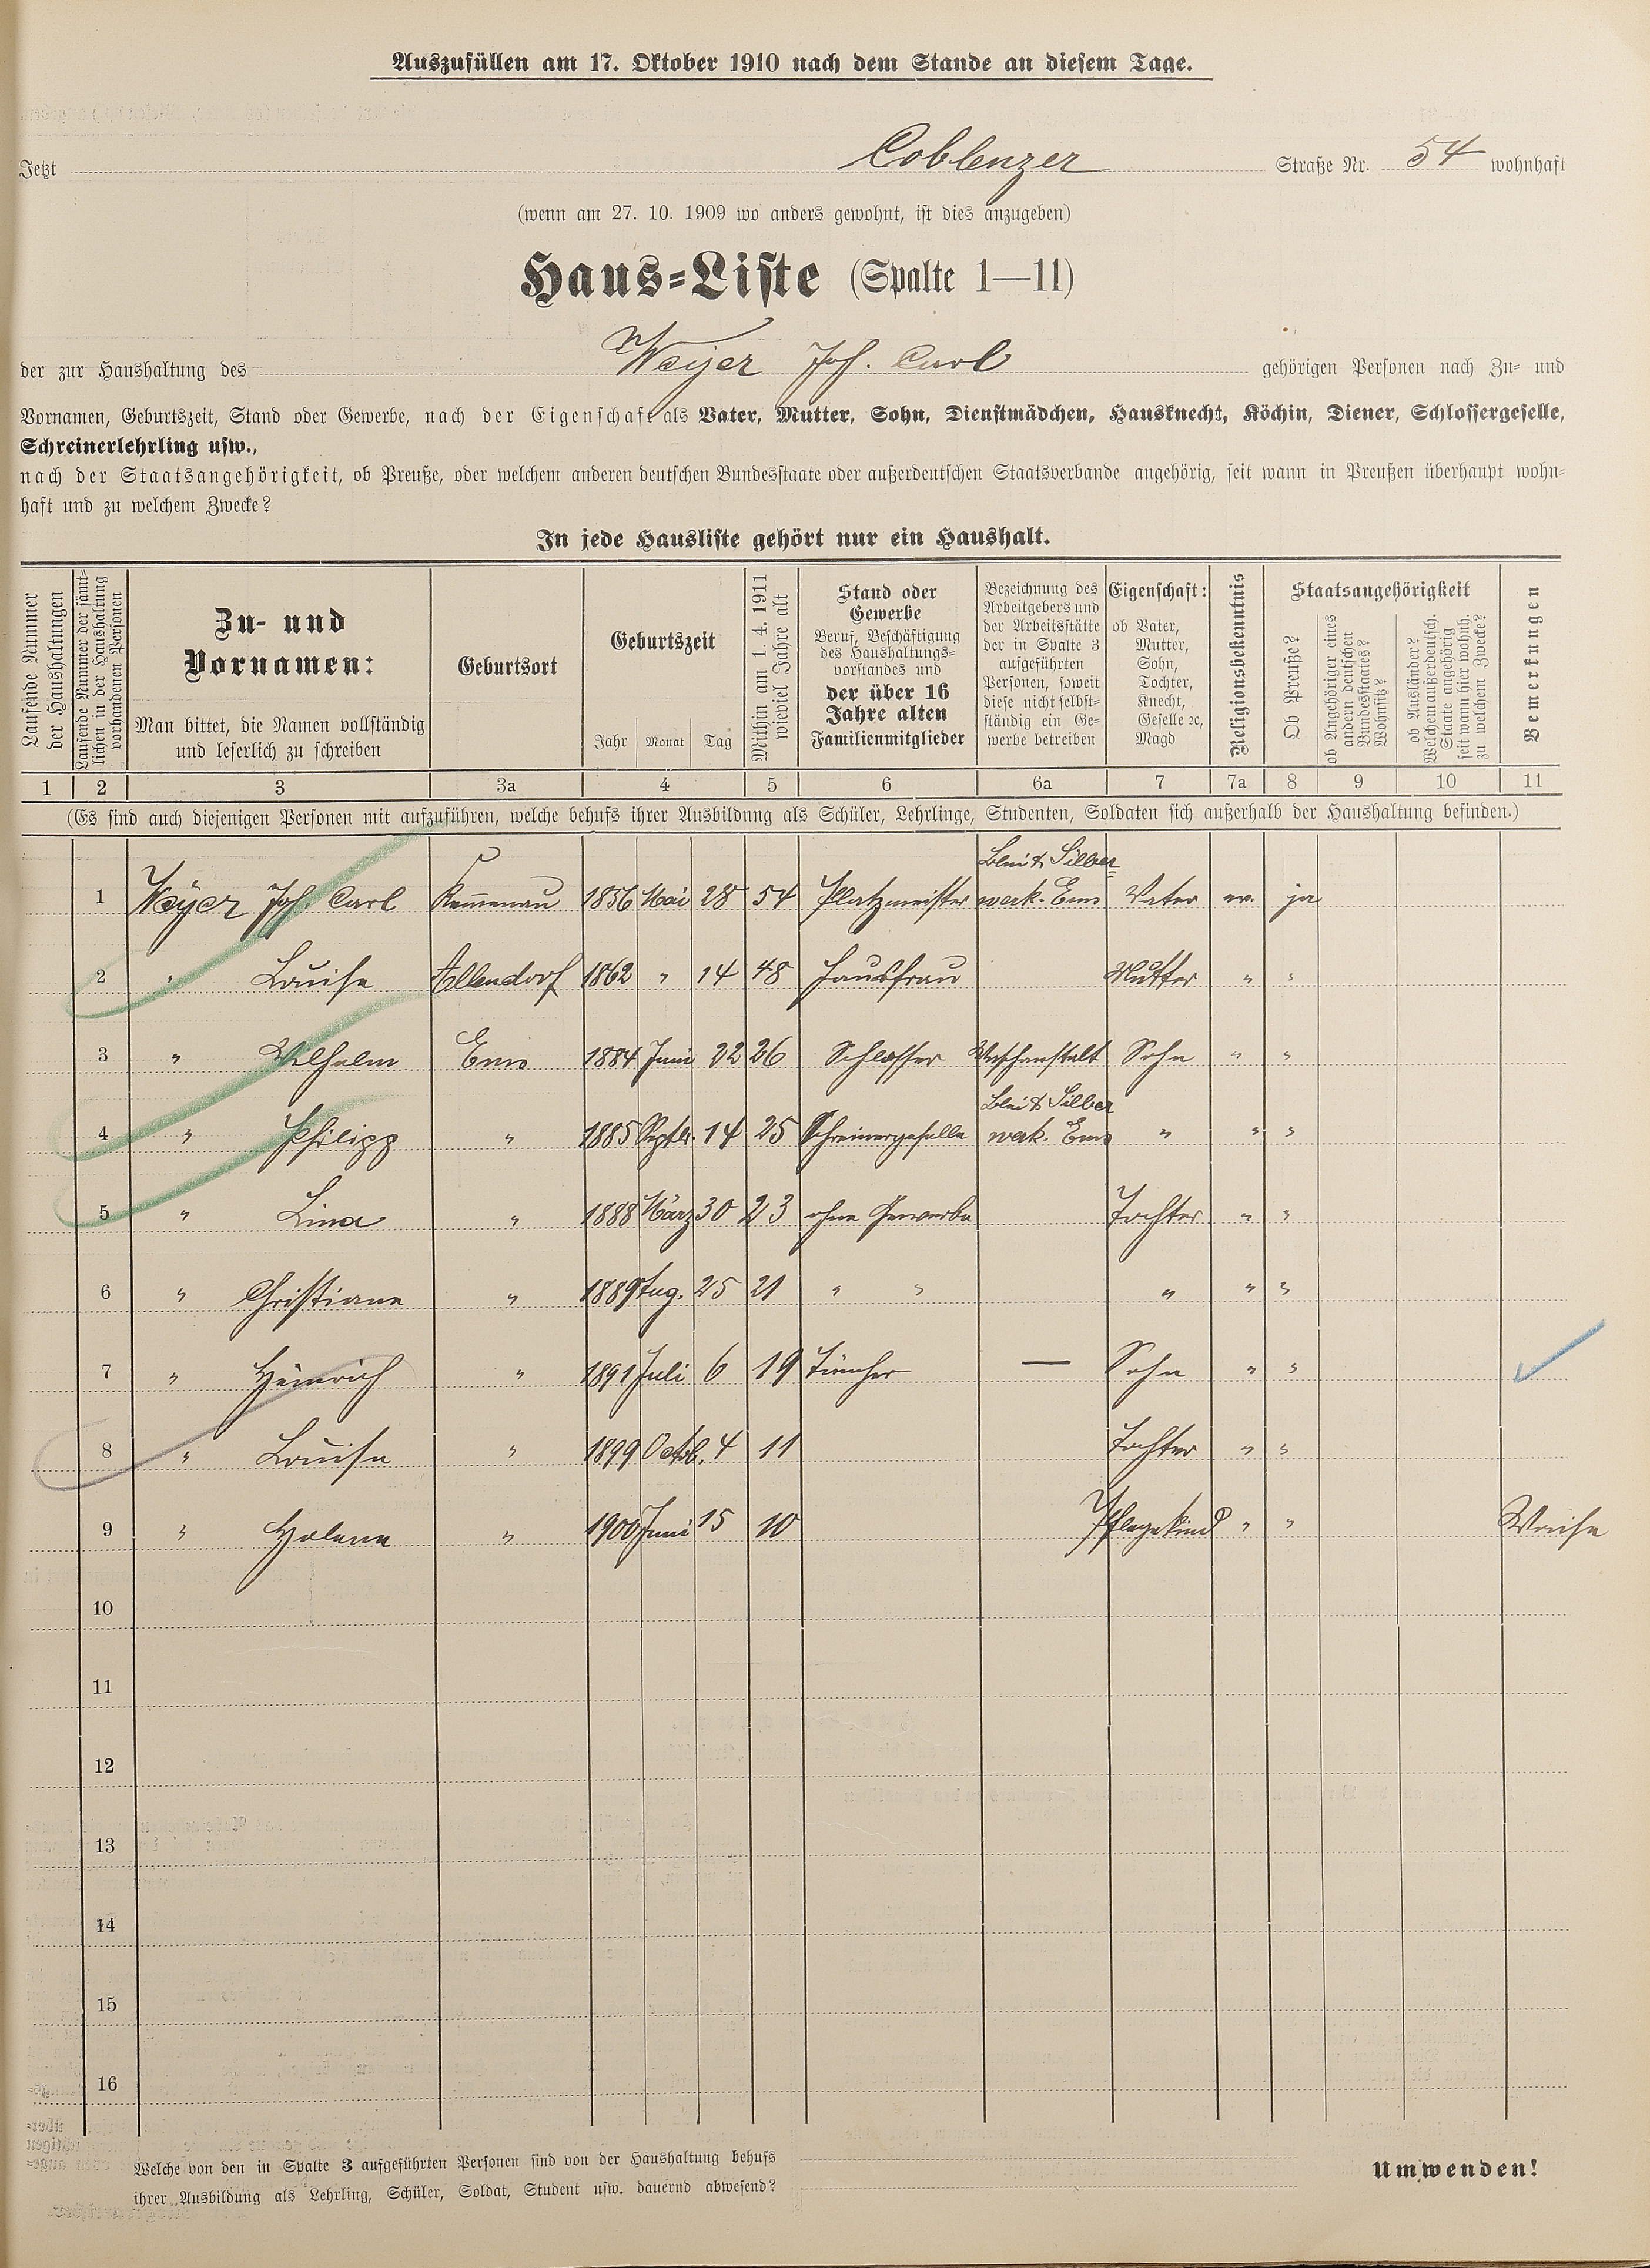 Auszufüllen am 17. Oktober 1910 nach dem Stande an diesem Tage.
Jetzt Coblenzer Straße Nr. 54 wohnhaft
(wenn am 27. 10. 1909 wo anders gewohnt, ist dies anzugeben)
Haus-Liste (Spalte 1—11)
der zur Haushaltung des Weyer Joh. Carl gehörigen Personen nach Zu- und
Vornamen, Geburtszeit, Stand oder Gewerbe, nach der Eigenschaft als Vater, Mutter, Sohn, Dienstmädchen, Hausknecht, Köchin, Diener, Schlossergeselle,
Schreinerlehrling usw.,
nach der Staatsangehörigkeit, ob Preuße, oder welchem anderen deutschen Bundesstaate oder außerdeutschen Staatsverbande angehörig, seit wann in Preußen überhaupt wohn-
haft und zu welchem Zwecke?
In jede Hausliste gehört nur ein Haushalt.
Laufende Nummer
der Haushaltungen
Laufende Nummer der sämt-
lichen in der Haushaltung
vorhandenen Personen
Zu- und
Vornamen:
Man bittet, die Namen vollständig
und leserlich zu schreiben
Geburtsort
Geburtszeit
Jahr Monat Tag
Mithin am 1. 4. 1911
wieviel Jahre alt
Stand oder
Gewerbe
Beruf, Beschäftigung
des Haushaltungs-
vorstandes und
der über 16
Jahre alten
Familienmitglieder
Bezeichnung des
Arbeitgebers und
der Arbeitsstätte
der in Spalte 3
aufgeführten
Personen, soweit
diese nicht selbst-
ständig ein Ge-
werbe betreiben
Eigenschaft:
ob Vater,
Mutter,
Sohn,
Tochter,
Knecht,
Geselle ꝛc,
Magd
Religionsbekenntnis
Staatsangehörigkeit
Ob Preuße?
ob Angehöriger eines
andern deutschen
Bundesstaates?
Wohnsitz?
ob Ausländer?
Welchem außerdeutsch.
Staate angehörig
seit wann hier wohnh.
zu welchem Zwecke?
Bemerkungen
1 2 3 3a 4 5 6 6a 7 7a 8 9 10 11
(Es sind auch diejenigen Personen mit aufzuführen, welche behufs ihrer Ausbildung als Schüler, Lehrlinge, Studenten, Soldaten sich außerhalb der Haushaltung befinden.)
Blei & Silber
1 Weyer Joh. Carl Kemmenau 1856 Mai 28 54 Platzmeister werk. Ems Vater ev. ja
2 " Louise Allendorf 1862 " 14 48 Hausfrau Mutter " "
3 " Wilhelm Ems 1884 Juni 22 26 Schlosser Waschanstalt Sohn " "
Blei & Silber
4 " Philipp " 1885 Septb. 14 25 Schreinergeselle werk. Ems " " "
5 " Lina " 1888 März 30 23 ohne Gewerbe Tochter " "
6 " Christiane " 1889 Aug. 25 21 " " " " "
7 " Heinrich " 1891 Juli 6 19 Tüncher — Sohn " "
8 " Louise " 1899 Octob. 4 11 Tochter " "
9 " Helene " 1900 Juni 15 10 Pflegekind " " Waise
10
11
12
13
14
15
16
Welche von den in Spalte 3 aufgeführten Personen sind von der Haushaltung behufs
ihrer Ausbildung als Lehrling, Schüler, Soldat, Student usw. dauernd abwesend?
Umwenden!